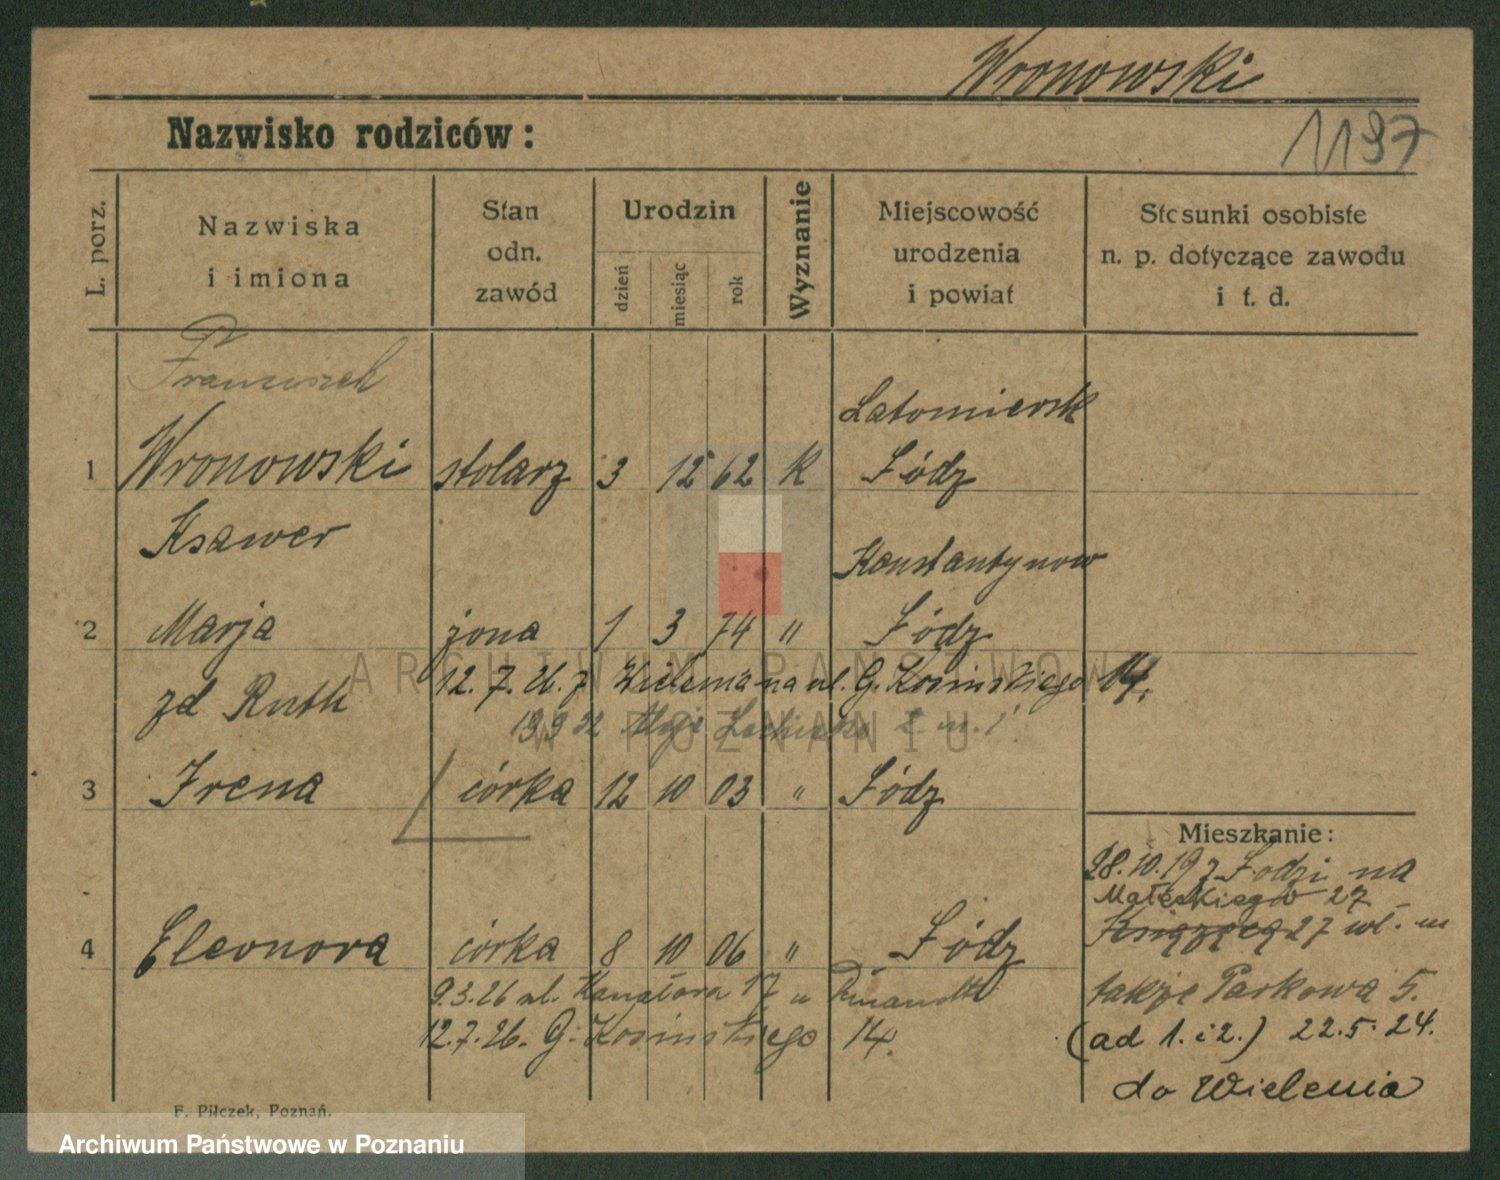 Wronowski
1197
Nazwisko rodziców:
L. porz.
Nazwiska
i imiona
Stan
odn.
zawód
Urodzin
dzień
miesiąc
rok
Wyznanie
Miejscowość
urodzenia
i powiat
Stosunki osobiste
n. p. dotyczące zawodu
i t. d.
Franciszek
Latomiersk
1 Wronowski stolarz 3 12 62 K Łódz
Ksawer
Konstantynow
2 Marja żona 1 3 74 " Łódz
zd Ruth 12.7.26. z Wielenia na ul. G. Kosinskiego 14.
13.9.32
3 Irena córka 12 10 03 " Łódz
Mieszkanie:
28.10.19 z Łodzi na
Małeckiego 27
Książęca 27 wl. m
4 Eleonora córka 8 10 06 " Łódz
9.3.26 ul. Kanałowa 17 u
także Parkowa 5.
12.7.26. G. Kosinskiego 14.
(ad 1. i 2.) 22.5.24.
do Wielenia
F. Pilczek, Poznań.
ARCHIWUM PAŃSTWOWE
W POZNANIU
Archiwum Państwowe w Poznaniu